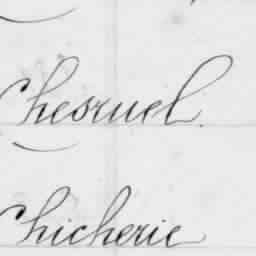 Chesruel.
Chicherie